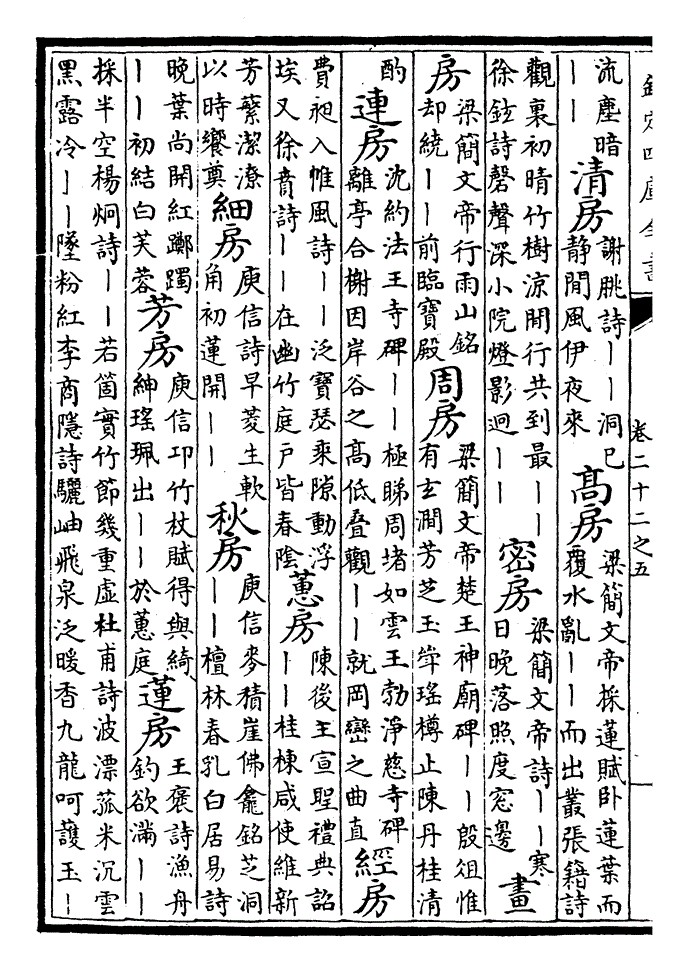 欽定四庫全書 卷二十二之五
流塵暗
——
清房
謝朓詩——洞已
靜閒風伊夜來
高房
梁簡文帝採蓮賦卧蓮葉而
覆水亂——而出叢張籍詩
觀裏初晴竹樹涼閒行共到最——
徐鉉詩磬聲深小院燈影迥——
密房
梁簡文帝詩——寒
日晚落照度窓邊
畫
房
梁簡文帝行雨山銘
却繞——前臨寶殿
周房
梁簡文帝楚王神廟碑——殷俎惟
有玄澗芳芝玉斝瑶樽止陳丹桂清
酌
連房
沈約法王寺碑——極睇周堵如雲王勃淨慈寺碑
離亭合榭因岸谷之高低叠觀——就岡巒之曲直
經房
費昶入帷風詩——泛寶瑟乘隙動浮
埃又徐賁詩——在幽竹庭戶皆春陰
蕙房
陳後主宣聖禮典詔
——桂棟咸使維新
芳蘩潔潦
以時饗奠
細房
庾信詩早菱生軟
角初蓮開——
秋房
庾信麥積崖佛龕銘芝洞
——檀林春乳白居易詩
晚葉尚開紅躑躅
——初結白芙蓉
芳房
庾信卭竹杖賦得與綺
紳瑶珮出——於蕙庭
蓮房
王褒詩漁舟
釣欲滿——
採半空楊炯詩——若箇實竹節幾重虛杜甫詩波漂菰米沉雲
黑露冷——墜粉紅李商隱詩驪岫飛泉泛暖香九龍呵護玉——